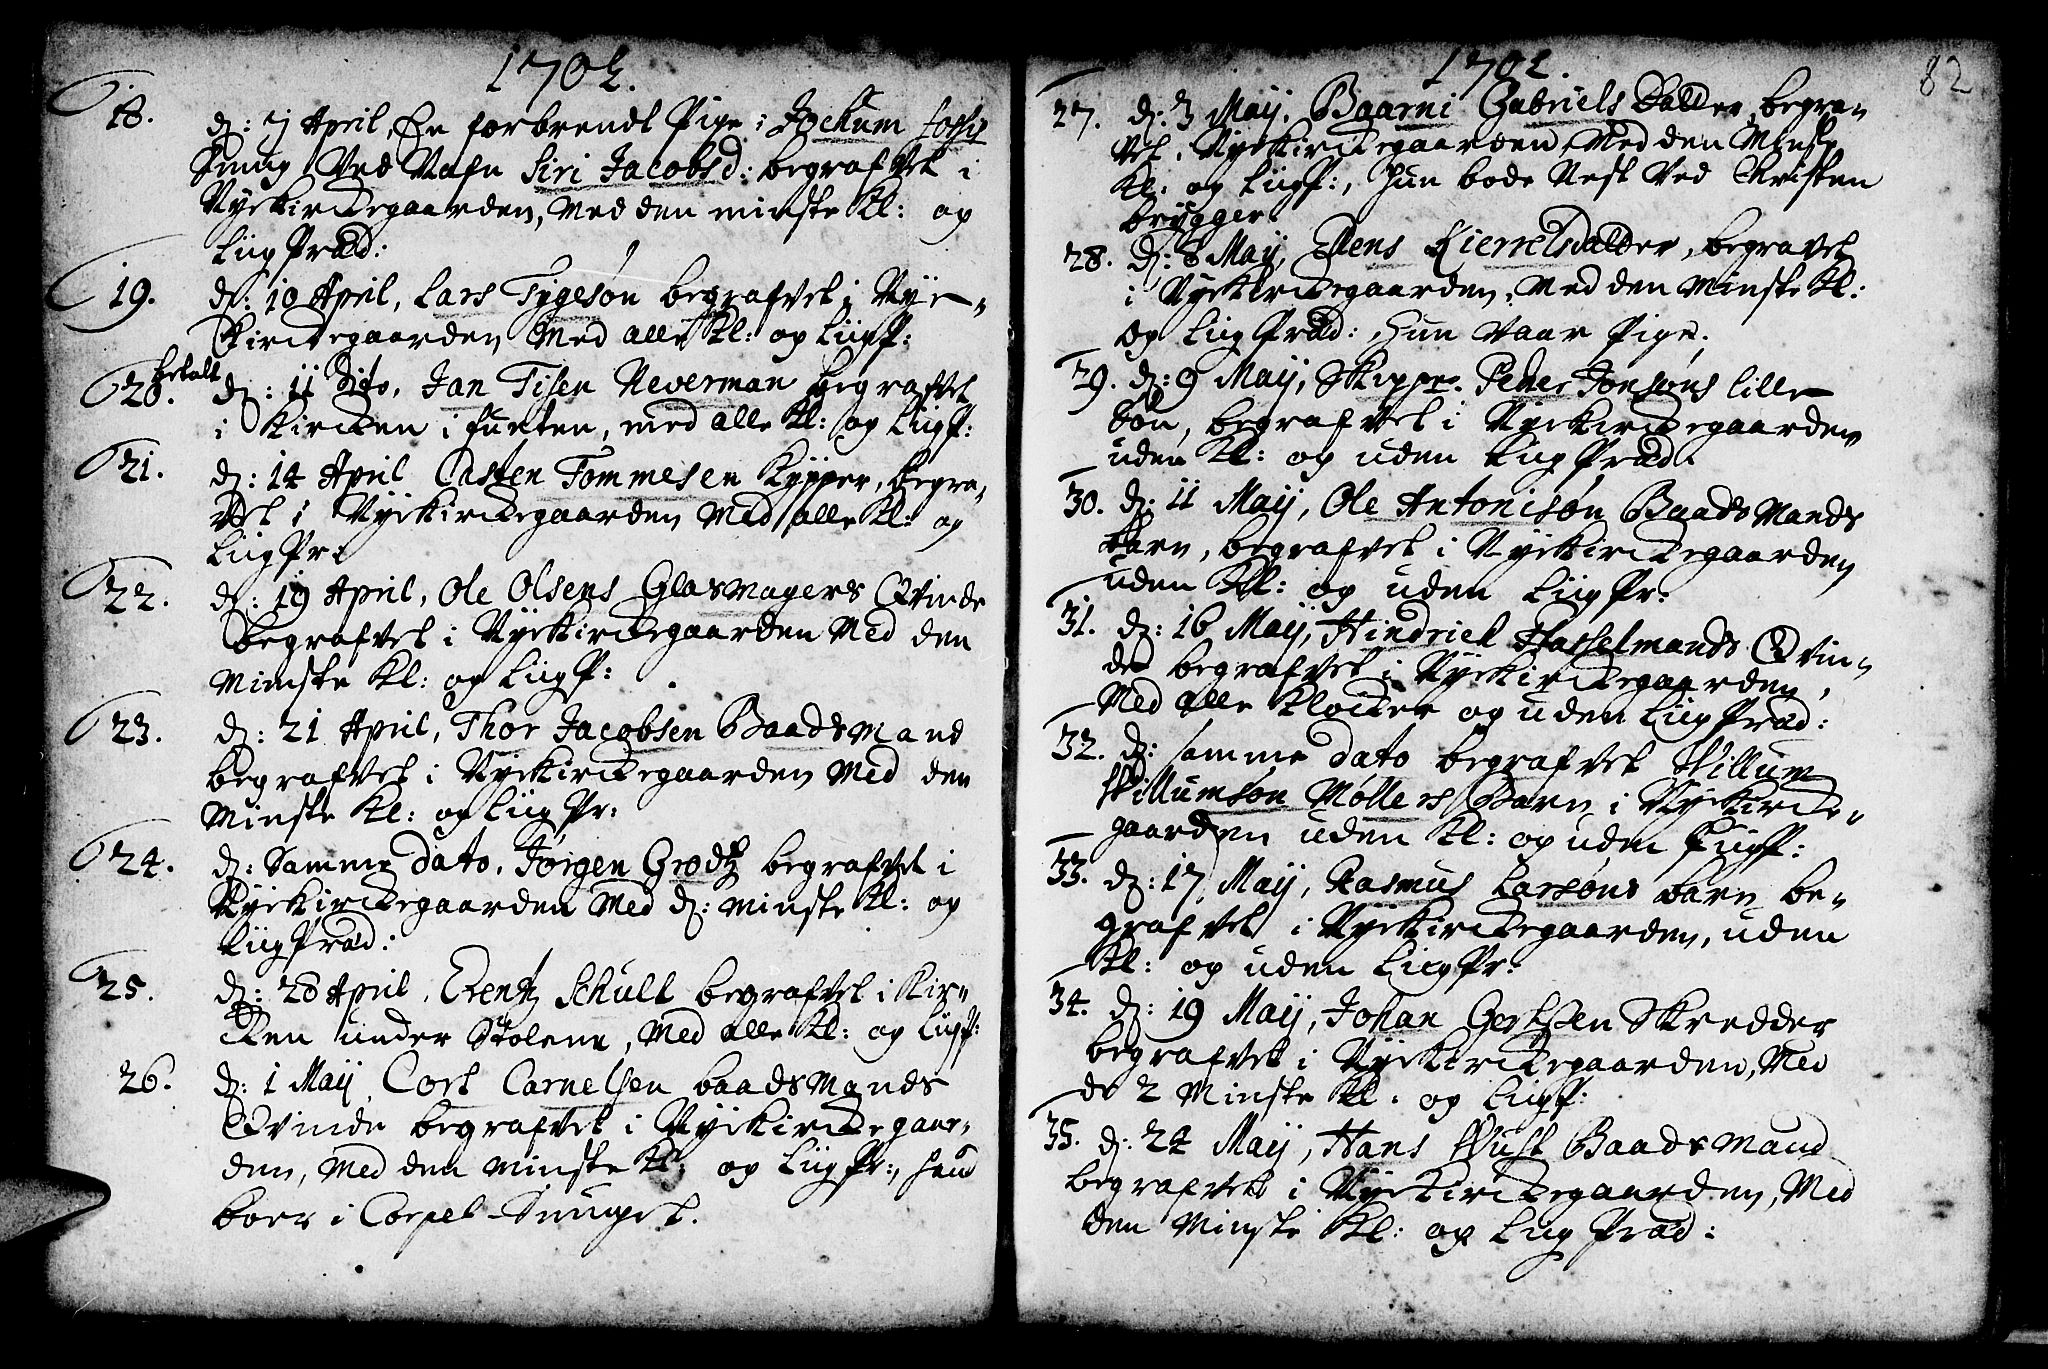 1702.
18. d: 7 April, En forbrendt Pige i Jochum
Smug Ved Nafn Siri Jacobsd: begrafvet i
Nyekirckegaarden, Med den minste Kl: og
Liig Præd:
19. d: 10 April, Lars Tygesøn begrafvet i Nye-
Kirckegaarden Med alle Kl: og Liigp:
betalt
20. d: 11 Dito, Jan Tijsen Neverman begrafvet
i Kircken i funten, med alle Kl: og Liigp:
21. d: 14 April Casten Tommesen Kypper, begra-
vet i Nyekirckegaarden Med alle Kl: og
Liig Pr:
22. d: 19 April, Ole Olsens Glasmagers Qvinde
begrafvet i Nyekirckegaarden Med den
Minste Kl: og Liigp:
23. d: 21 April, Thor Jacobsen Baadsmand
begrafvet i Nyekirckegaarden Med den
Minste Kl: og Liig Pr:
24. d: Samme Dato, Jørgen Grodtz begrafvet i
Nyekirckegaarden Med d: minste Kl: og
Liig Præd:
25. d: 28 April, Erentz Schult begrafvet i Kir-
cken under Stolene, Med alle Kl: og Liigp:
26. d: 1 Maij Cort Carnelsen baadsmands
Qvinde begrafvet i Nyekirckegaar-
den, Med den minste Kl: og Liig Pr:, hand
boer i Corpel-Smuget.
1702. 82
27. d: 3 Maij, Baarni Gabriels Datter, begra-
vet i Nyekirckegaarden, Med den Minste
Kl: og Liigp:, Hun bode Nest Ved Christen
brygger.
28. d: 8 Maij, Ellens Kierrelsdatter, begravet
i Nyekirckegaarden, Med den Minste Kl:
og Liig Præd: Hun Vaar Pige.
29. d: 9 Maij, Skipper Peder Jonsøns lille
Søn, begrafvet i Nyekirckegaarden
uden Kl: og uden Liig Præd.
30. d: 11 Maij, Ole Antonisøn Baadsmands
Barn, begrafvet i Nyekirckegaarden
uden Kl: og uden Liig Pr:
31. d: 16 Maij, Hindrick Hasselmands Qvin-
de begrafvet i Nyekirckegaarden,
Med alle Klocker og uden Liig Præd:
32. d: samme dato begrafvet Skillum
Skillumsøn Møllers Barn i Nyekircke-
gaarden uden Kl: og uden Liigp:
33. d: 17 Maij, Rasmus Larsøns barn be-
grafvet i Nyekirckegaarden, uden
Kl: og uden Liig Pr:
34. d: 19 Maij, Johan Gertsen Skredder
begrafvet i Nyekirckegaarden, Med
de 2 Minste Kl: og Liigp:
35. d: 24 Maij, Hans Baadsmand
begrafvet i Nyekirckegaarden, Med
den Minste Kl: og Liig Præd: